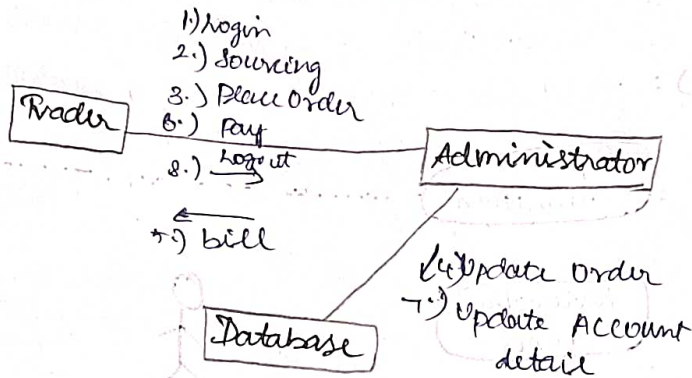 1.) Login
2.) Sourcing
3.) Place Order
6.) Pay
8.) Logout
5.) bill
Trader
Administrator
4.) Update Order
7.) Update Account
detail
Database